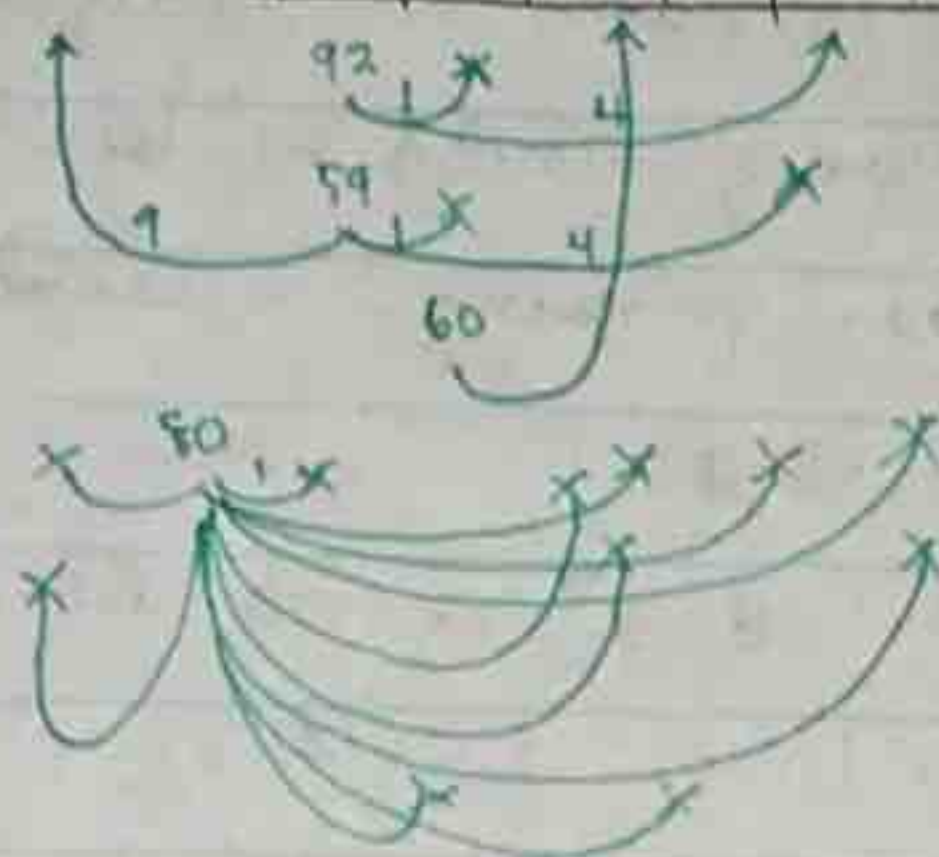 92
1
4
59
9
1
4
60
80
1